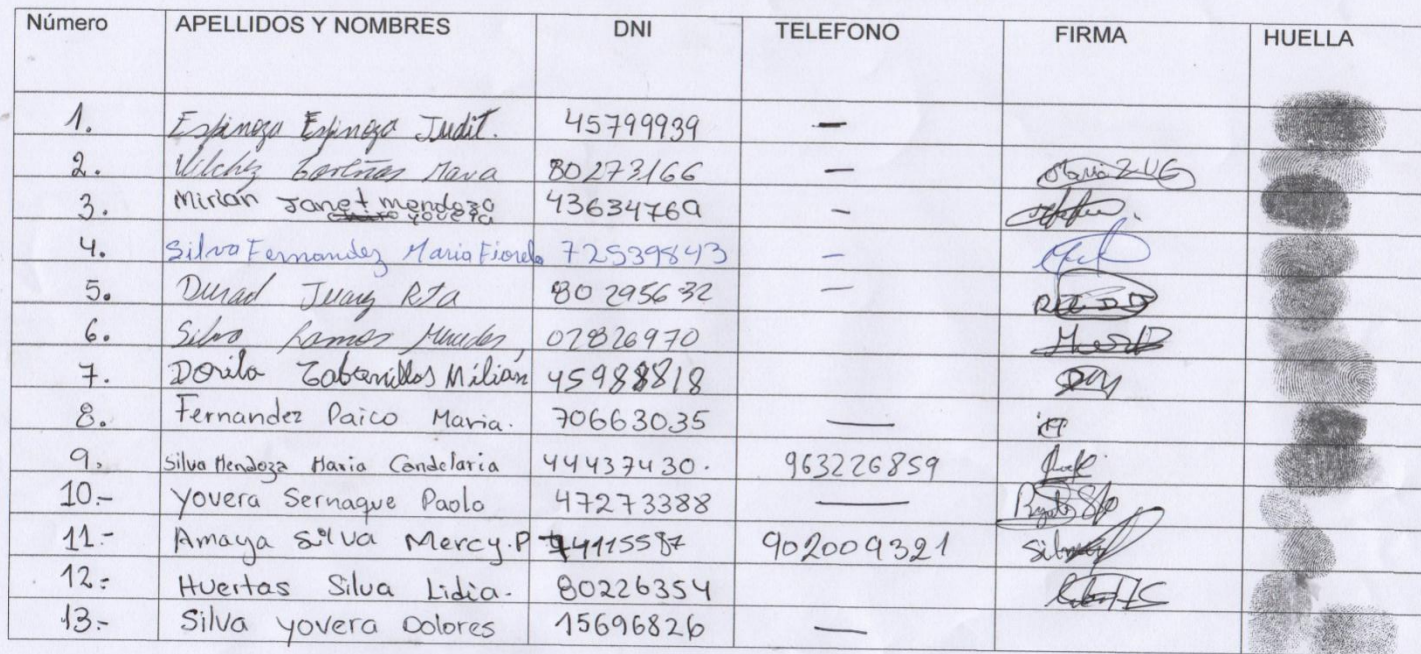 Número APELLIDOS Y NOMBRES DNI TELEFONO FIRMA HUELLA
1. Espinoza Espinoza Judit. 45799939 —
2. Vilchez Maria 80273166 —
3. Mirian Janet mendoza yovera 43634769 —
4. Silva Fernandez Maria Fiorela 72539843 —
5. Durad Juarez Rita 80295632 —
6. Silva Ramos Mercedes, 02826970
7. Dorila Milián 45988818
8. Fernandez Paico Maria. 70663035 —
9. Silva Mendoza Maria Candelaria 44437430. 963226859
10.- Yovera Sernaque Paolo 47273388 —
11.- Amaya Silva Mercy.P 74115587 902009321
12.- Huertas Silva Lidia. 80226354
13.- Silva yovera Dolores 15696826 —